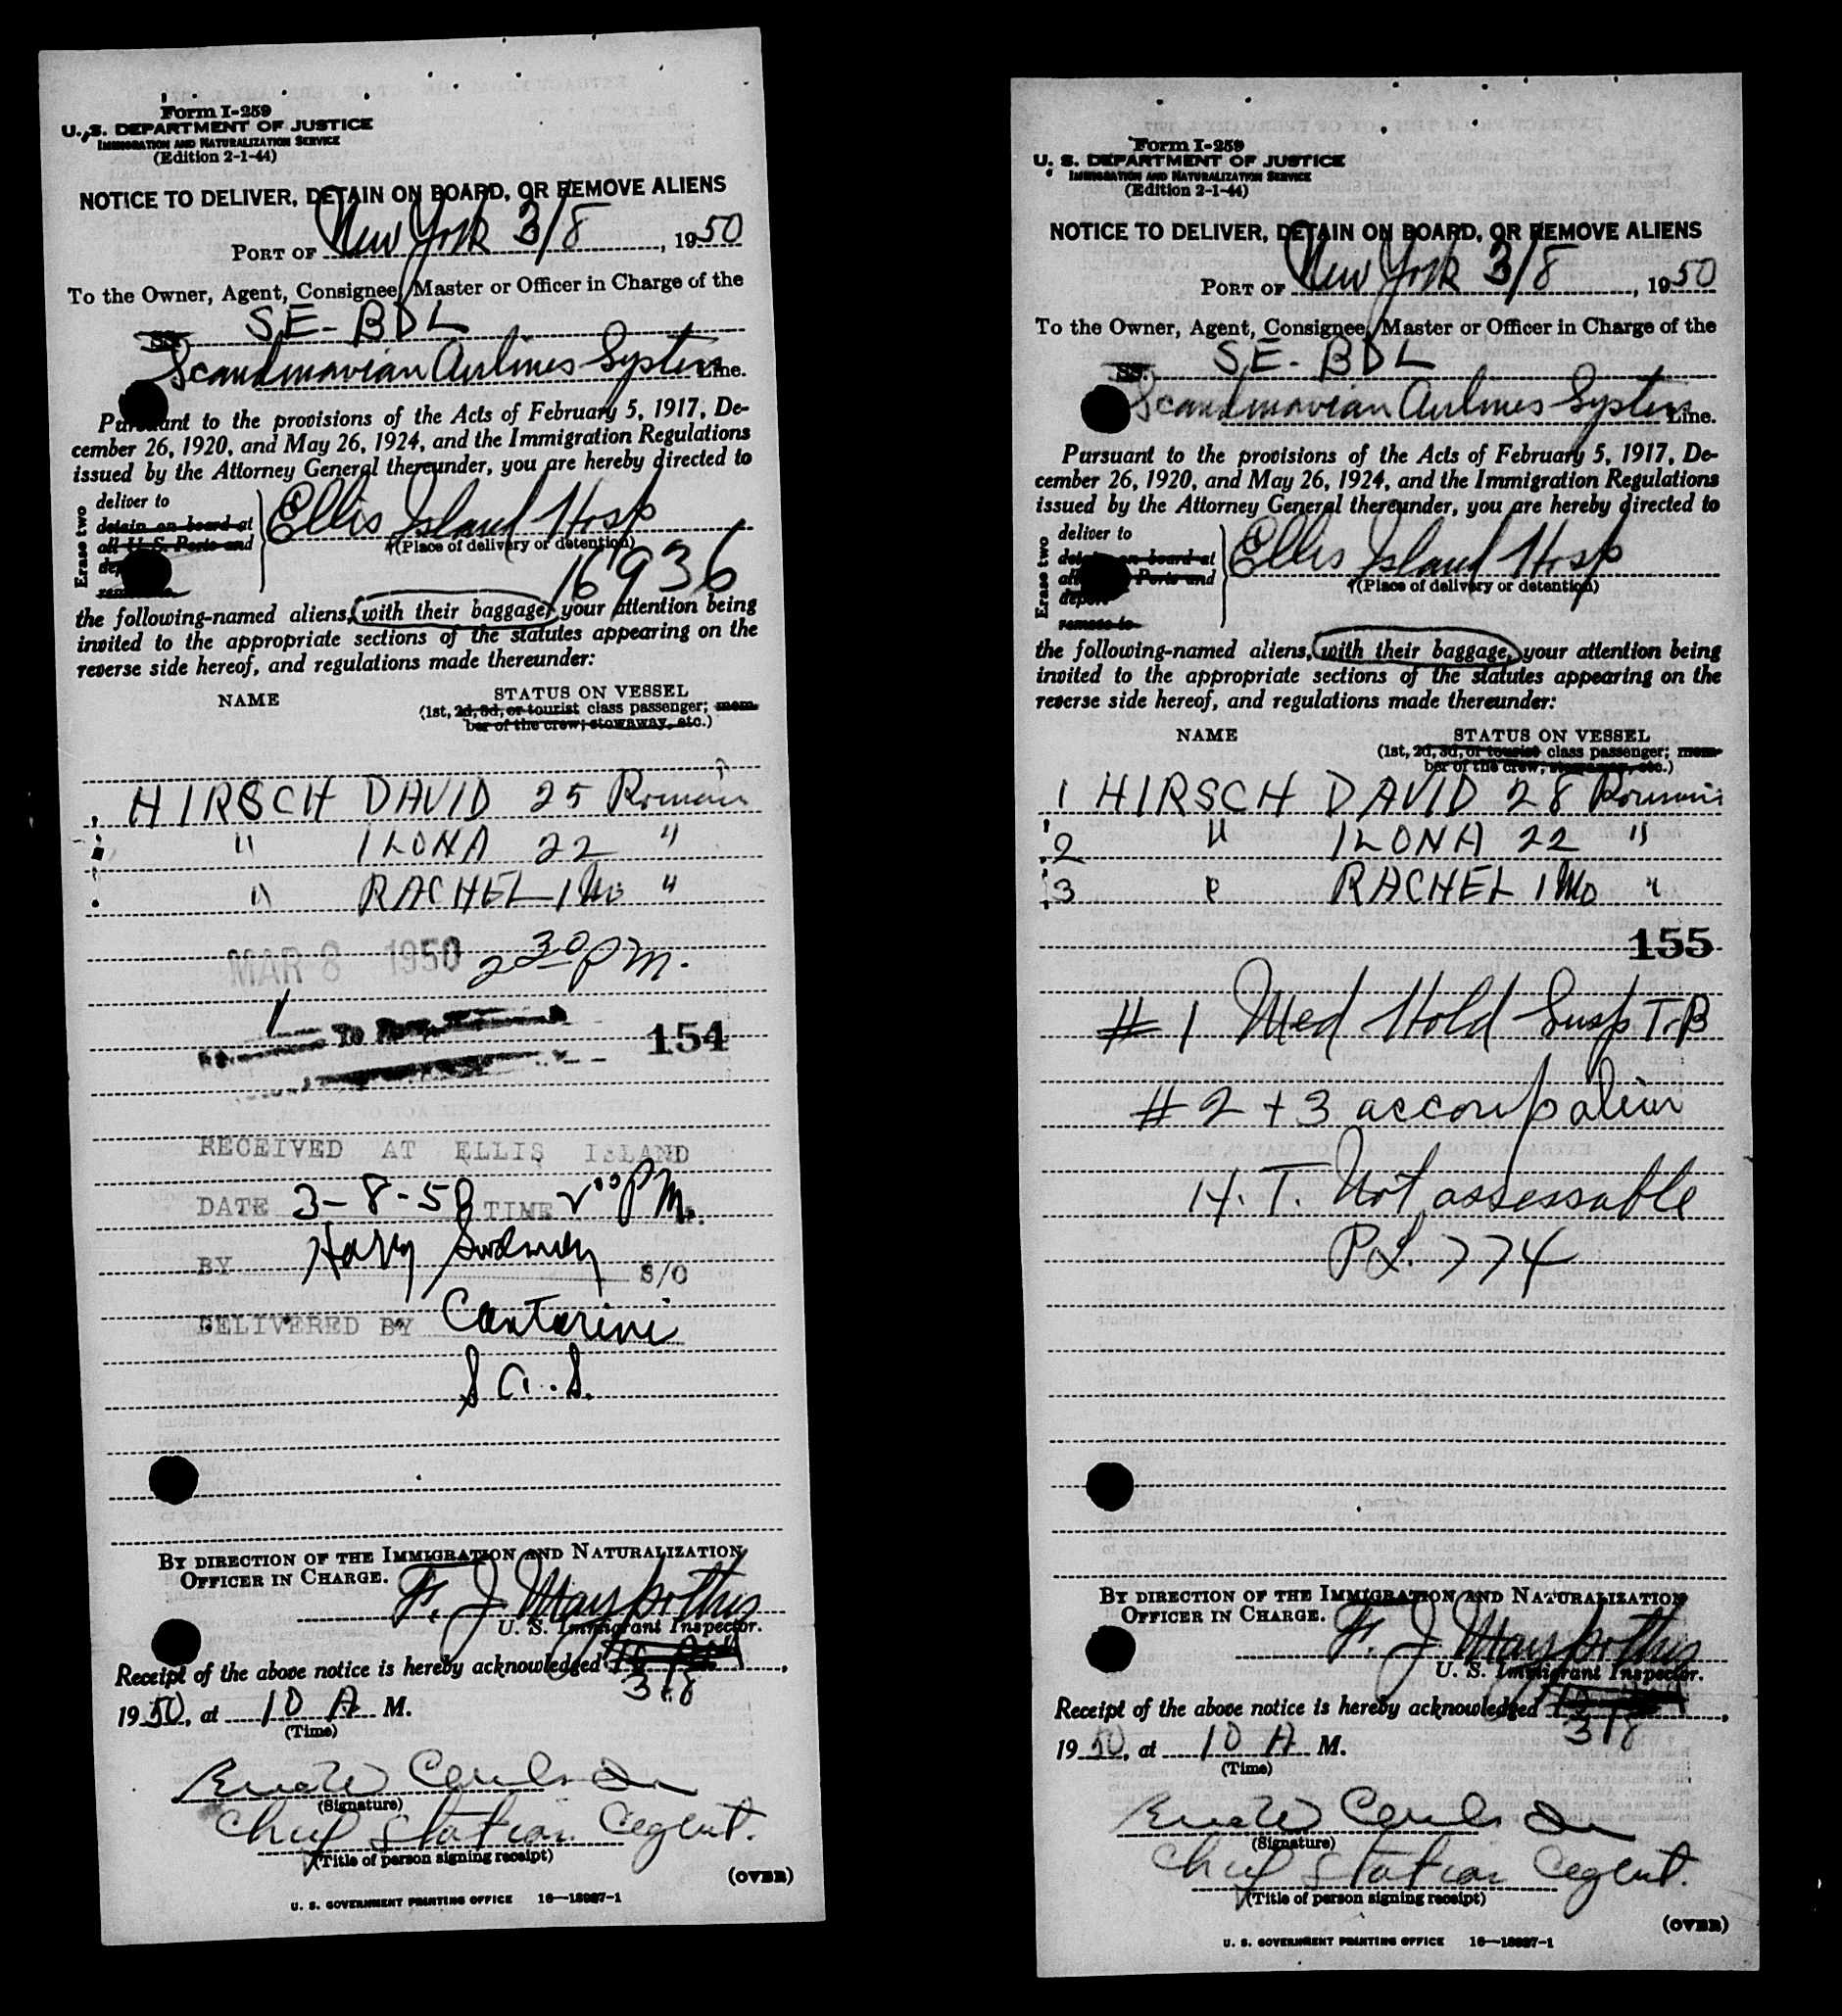 Form I-259
U. S. DEPARTMENT OF JUSTICE
IMMIGRATION AND NATURALIZATION SERVICE
(Edition 2-1-44)
NOTICE TO DELIVER, DETAIN ON BOARD, OR REMOVE ALIENS
PORT OF New York 3/8, 1950
To the Owner, Agent, Consignee, Master or Officer in Charge of the
SS. SE-BDL
Scandinavian Airlines System Line.
Pursuant to the provisions of the Acts of February 5, 1917, De-
cember 26, 1920, and May 26, 1924, and the Immigration Regulations
issued by the Attorney General thereunder, you are hereby directed to
Erase two
deliver to
detain on board at
all U. S. Ports and
remove to
Ellis Island Hosp
(Place of delivery or detention)
16936
the following-named aliens, with their baggage, your attention being
invited to the appropriate sections of the statutes appearing on the
reverse side hereof, and regulations made thereunder:
NAME STATUS ON VESSEL
(1st, 2d, 3d, or tourist class passenger; mem-
ber of the crew; stowaway, etc.)
HIRSCH DAVID 25 Romain
" ILONA 22 "
" RACHEL 1 Mo "
MAR 8 1950 2 30 PM.
154
RECEIVED AT ELLIS ISLAND
DATE 3-8-50 TIME PM.
BY Harry S/O
DELIVERED BY Cantarini
S.A.S.
BY DIRECTION OF THE IMMIGRATION AND NATURALIZATION
OFFICER IN CHARGE.
F. J.
U. S. Immigrant Inspector.
Receipt of the above notice is hereby acknowledged 3/8,
1950, at 10 A M.
(Time)
(Signature)
Chief Station Agent.
(Title of person signing receipt)
(OVER)
U. S. GOVERNMENT PRINTING OFFICE 16—18987-1
Form I-259
U. S. DEPARTMENT OF JUSTICE
IMMIGRATION AND NATURALIZATION SERVICE
(Edition 2-1-44)
NOTICE TO DELIVER, DETAIN ON BOARD, OR REMOVE ALIENS
PORT OF New York 3/8, 1950
To the Owner, Agent, Consignee, Master or Officer in Charge of the
SS. SE-BDL
Scandinavian Airlines System Line.
Pursuant to the provisions of the Acts of February 5, 1917, De-
cember 26, 1920, and May 26, 1924, and the Immigration Regulations
issued by the Attorney General thereunder, you are hereby directed to
Erase two
deliver to
on board at
Ports and
deport
remove to
Ellis Island Hosp
(Place of delivery or detention)
the following-named aliens, with their baggage, your attention being
invited to the appropriate sections of the statutes appearing on the
reverse side hereof, and regulations made thereunder:
NAME STATUS ON VESSEL
(1st, 2d, 3d, or tourist class passenger; mem-
ber of the crew; stowaway, etc.)
1 HIRSCH DAVID 28
2 " ILONA 22 "
3 " RACHEL 1 Mo "
155
# 1 Med Hold Susp T-B
# 2 + 3 accomp alien
H. T. Not assessable
P.L. 774
BY DIRECTION OF THE IMMIGRATION AND NATURALIZATION
OFFICER IN CHARGE.
F. J.
U. S. Immigrant Inspector.
Receipt of the above notice is hereby acknowledged 3/8,
1950, at 10 A M.
(Time)
(Signature)
Chief Station Agent.
(Title of person signing receipt)
(OVER)
U. S. GOVERNMENT PRINTING OFFICE 16—18987-1